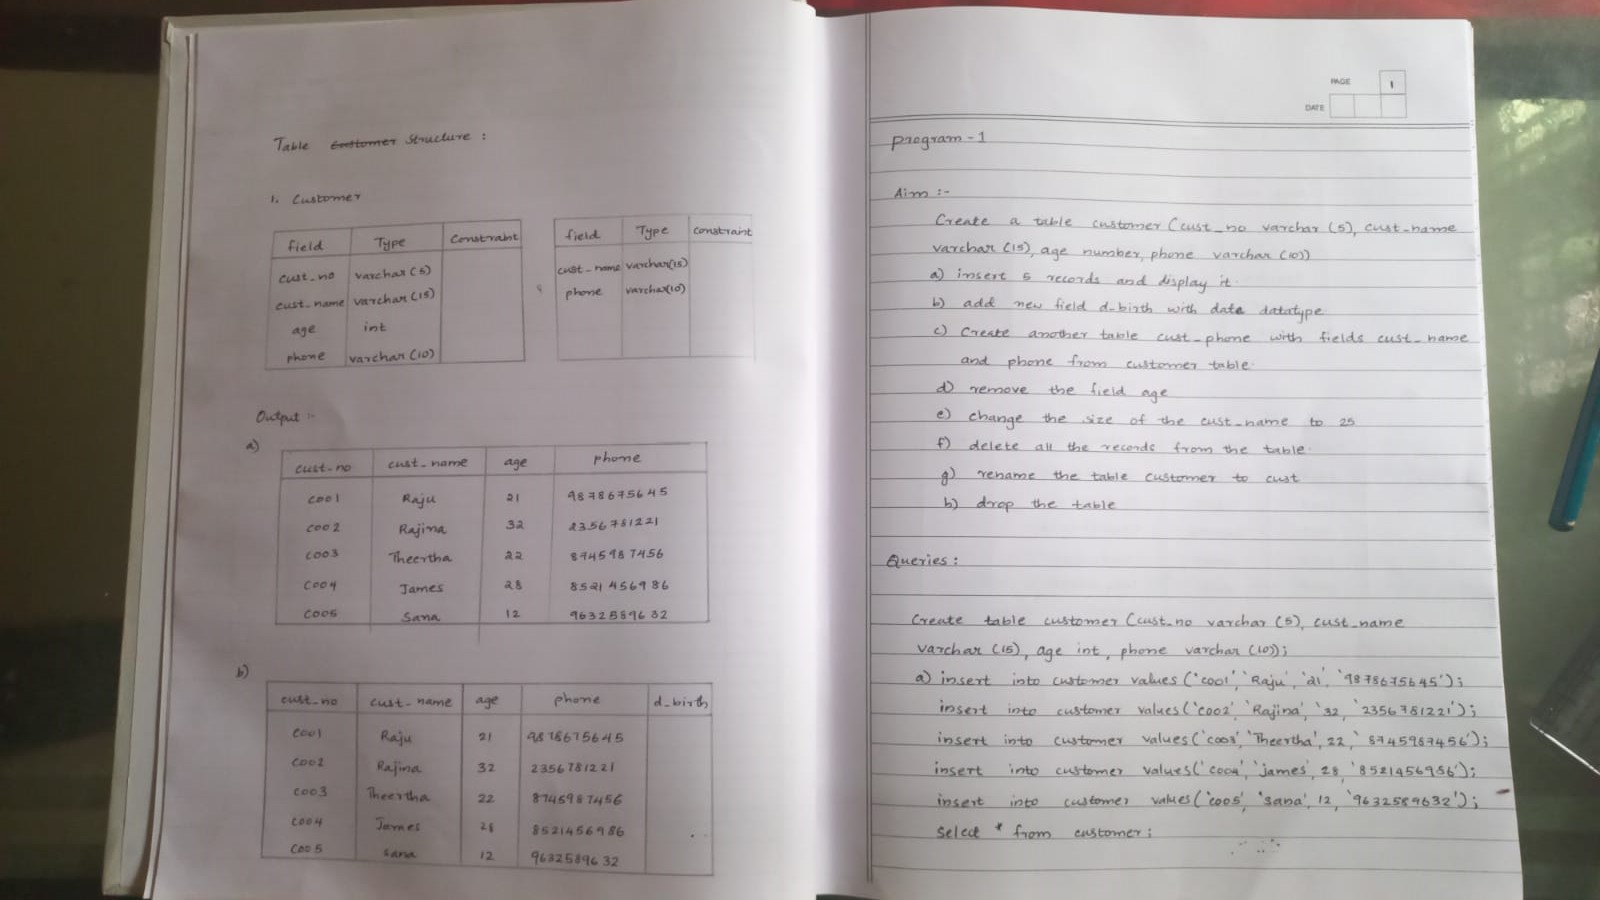 Table Customer Structure :
1. Customer
field Type Constraint
cust_no varchar (5)
cust_name varchar (15)
age int
phone varchar (10)
field Type constraint
cust_name varchar(15)
phone varchar(10)
Output :-
a)
cust_no cust_name age phone
C001 Raju 21 9878675645
C002 Rajina 32 2356781221
C003 Theertha 22 8745987456
C004 James 28 8521456986
C005 Sana 12 9632589632
b)
cust_no cust_name age phone d_birth
C001 Raju 21 9878675645
C002 Rajina 32 2356781221
C003 Theertha 22 8745987456
C004 James 28 8521456986
C005 Sana 12 9632589632
PAGE 1
DATE
Program - 1
Aim :-
Create a table customer (cust_no varchar (5), cust_name
varchar (15), age number, phone varchar (10))
a) insert 5 records and display it.
b) add new field d_birth with date datatype
c) Create another table cust_phone with fields cust_name
and phone from customer table.
d) remove the field age
e) change the size of the cust_name to 25
f) delete all the records from the table.
g) rename the table customer to cust
h) drop the table
Queries :
Create table customer (cust_no varchar (5), cust_name
varchar (15), age int, phone varchar (10));
a) insert into customer values ('C001', 'Raju', '21, '9878675645');
insert into customer values('C002', 'Rajina', '32, '2356781221');
insert into customer values('C003', 'Theertha', 22, '8745987456');
insert into customer values('C004', 'james', 28, '8521456986');
insert into customer values('C005', 'sana', 12, '9632589632');
Select * from customer;